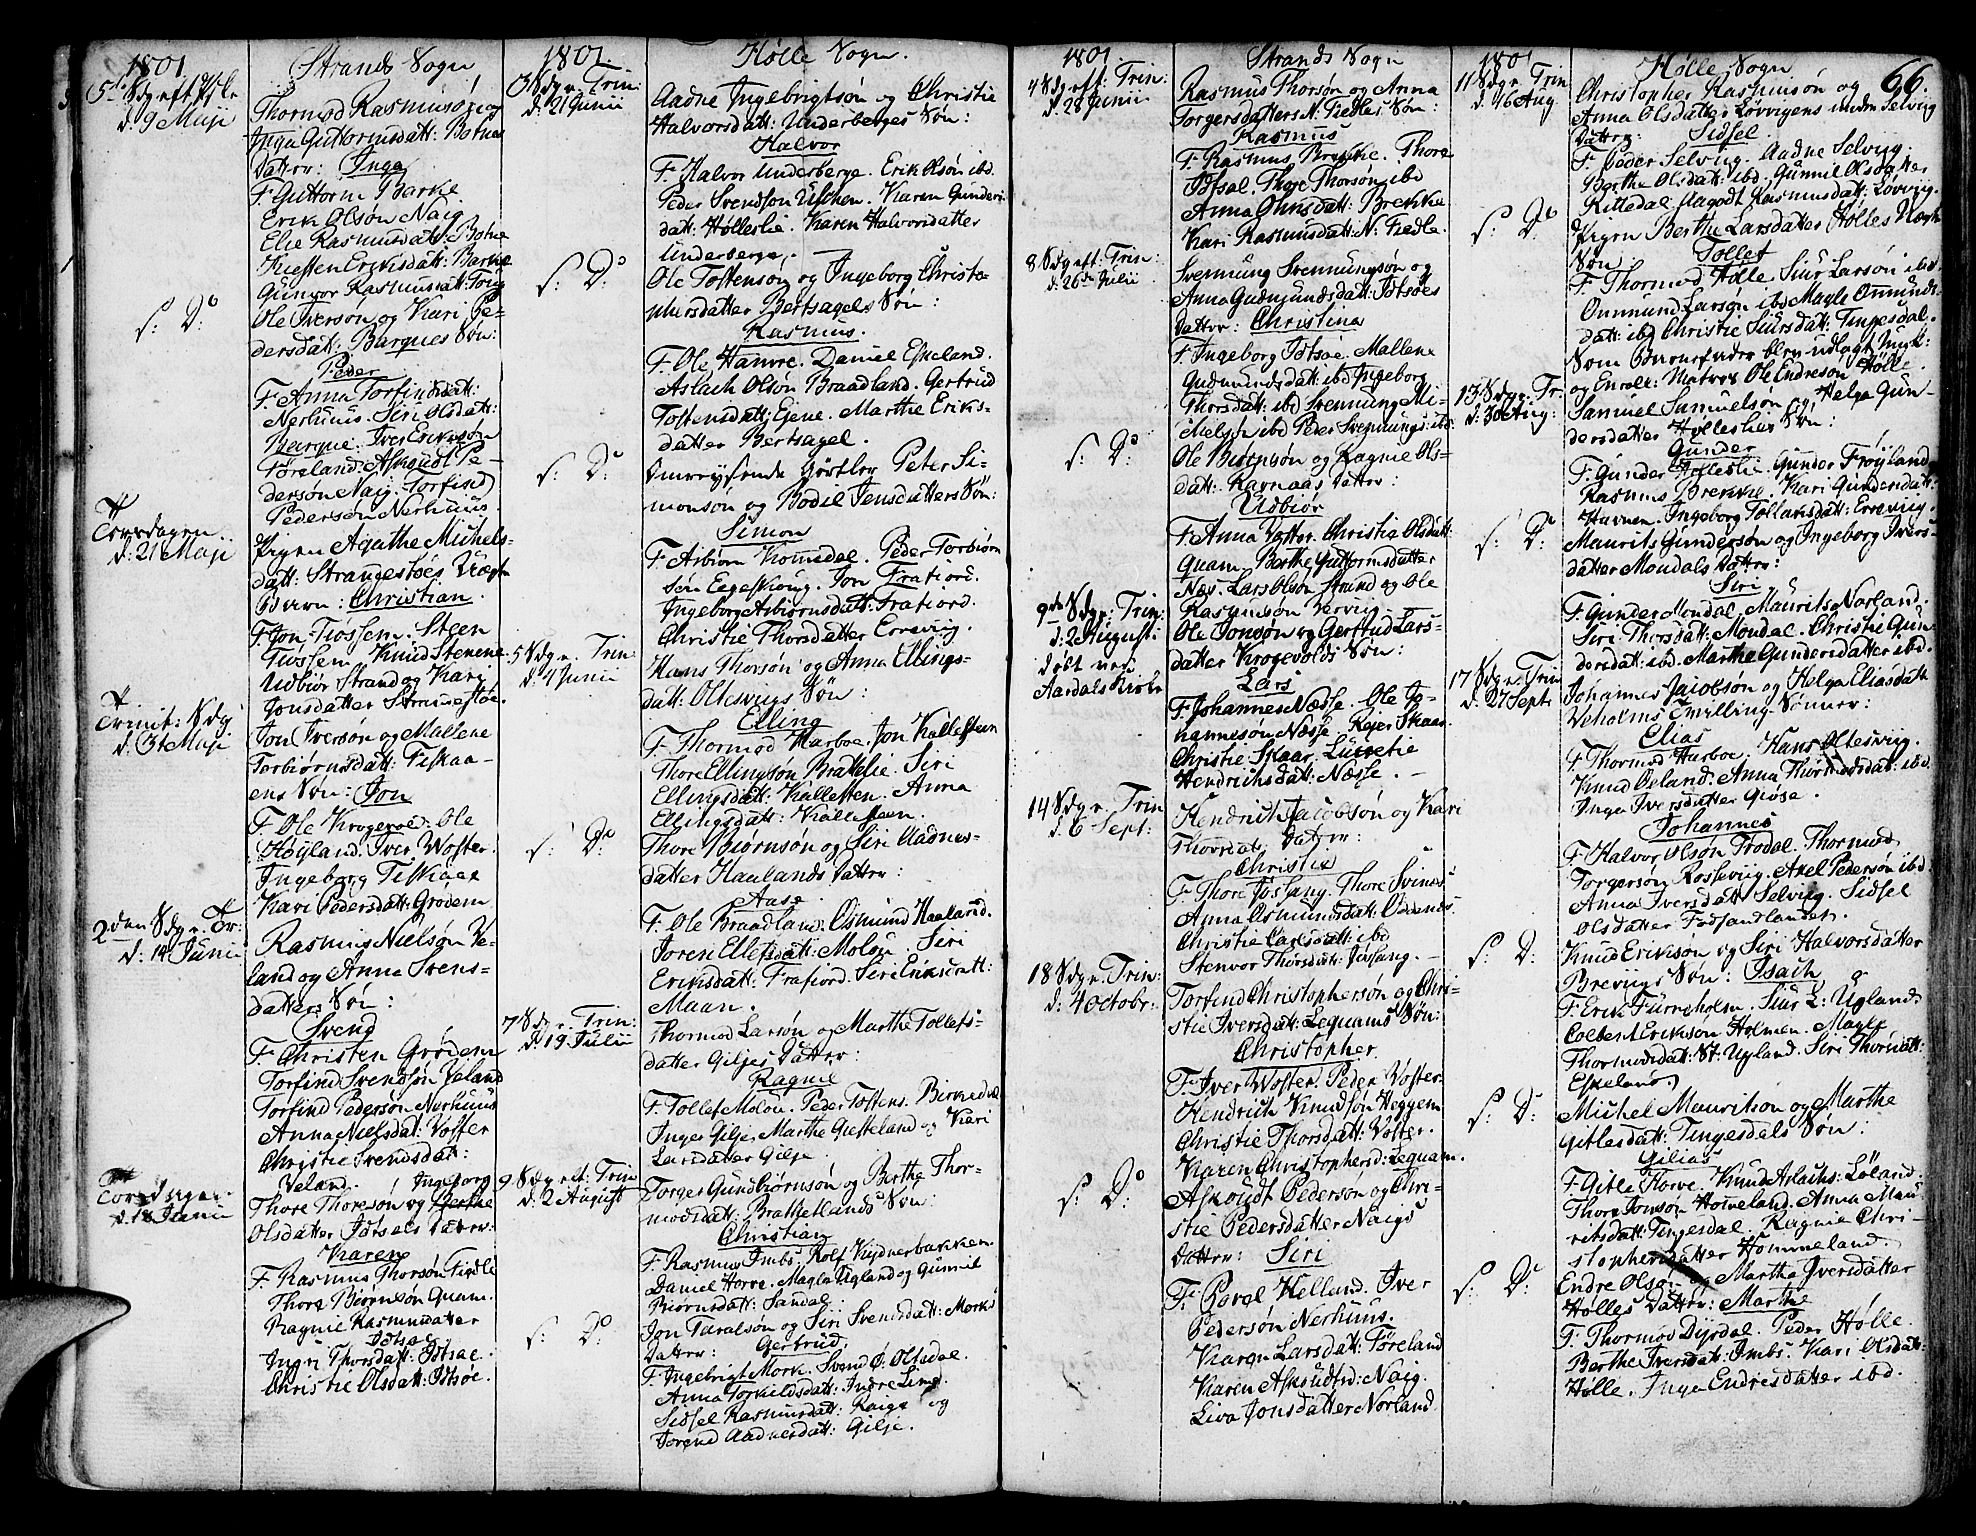 1801
Strands Sogn
5te Sdg eft Psk:
d. 9 Maji
Thormod Rasmusøn og
Inga Guttormsdatt: Botnes
Datter: Inga
F. Guttorm Barke
Erik Olsøn Naig
Elie Rasmusdatt: Botne
Kiesten Eriksdatt: Barke
Gunvor Rasmusdatt:
s: D:
Ole Iversøn og Kari Pe-
dersdatt: Barques Søn:
Peder
F. Anna Torfindsdatt:
Nerhuus. Siri Olsdatt:
Barque. Iver Eriksøn
Tøreland. Askoudt Pe-
dersøn Naig. Torfind
Pedersøn Nerhuus.
Torsdagen
d: 21 Maji
Pigen Agathe Michels-
datt: Strangestøes Uægte
Barn: Christian.
F. Jon Tiøssem. Steen
Tiøssem Knud Stenene
Udbiør Strand og Kari
Jonsdatter
Trinit: Sdg
d. 31 Maji
Jon Iversøn og Mallene
Torbiørnsdatt: Fiskaa-
ens Søn: Jon
F. Ole Krogevold. Ole
Høyland. Iver Woster.
Ingeborg Fiskaae
Kari Pedersdatt: Grødem
2den Sdg e. Tr:
d: 14 Junii
Rasmus Nielsøn Ve-
land og Anna Svens-
datters Søn:
Svend
F. Christen Grødem
Torfind Svendsøn Veland
Torfind Pedersøn Nerhuus
Anna Nielsdat: Voster
Christie Svendsdatt:
Veland. Ingeborg
Torsdagen
d. 18 Junii
Thore Thoresøn og Berthe
Olsdatter Idtsøes Datter:
Karen
F. Rasmus Thorsøn Fiedle
Thore Biørnsøn Quam.
Ragnie Rasmusdatter
Idtsøe
Ingri Thorsdatt: Idtsøe.
Christie Olsdatt: Idtsøe.
1801.
Hølle Sogn.
3 Sdg e. Trin:
d. 21 Junii
Aadne Ingebrigtsøn og Christie
Halvorsdatt: Underberges Søn:
Halvor
F. Halvor Underberge. Erik Olsøn ibd.
Peder Svendsøn Uschen. Karen Gunders
datt: Hølleslie. Karen Halvorsdatter
Underberge.
s: D:
Ole Tostensøn og Ingeborg Christo
phersdatter Bertsagels Søn:
Rasmus.
F. Ole Hamre. Daniel Eskeland.
Aslach Olsøn Braadland. Gertrud
Tostensdatt: Ejene. Marthe Eriks-
datter Bertsagel.
s: D:
Omreysende Peter Si-
monsøn og Bodil Jensdatters Søn:
Simon
F. Asbiørn Komedal. Peder Torbiørn
søn Eegeskoug. Jon Frafiord.
Ingeborg Asbiørnsdatt: Frafiord.
Christie Thorsdatter Errevig.
5 Sdg e. Trin:
d. 4 Junii
Hans Thorsøn og Anna Ellings-
datt: Oltesvigs Søn:
Elling
F. Thormod Harboe. Jon Kallesteen
Thore Ellingsøn Brattelie. Siri
Ellingsdatt: Kallesteen. Anna
Ellingsdatt: Kallesteen.
s: D:
Thore Biørnsøn og Siri Aadnes-
datter Haalands Datter:
Aase
F. Ole Braadland. Osmund Haaland.
Joren Ellefsdatt: Moløe. Siri
Eriksdatt: Frafiord. Siri Eriksdatt:
Maan.
7 Sdg e. Trin:
d. 19 Julii
Thormod Larsøn og Marthe Tollefs-
datter Giljes Datter:
Ragnie
F. Tollef Moløe. Peder Tostens. Birkedal
Inger Gilje. Marthe Giesteland og Kari
Larsdatter Gilje.
9 Sdg eft: Trin
d. 2 August
Torger Gunbiørnsøn og Berthe Thor-
modsdatt: Brattelands Søn:
Christian
F. Rasmus Imbs. Rolf Kydnerbakken
Daniel Horve. Magla Ugland og Gunnil
Biørnsdatt: Sandal.
s: D:
Jon Taralsøn og Siri Svendsdatt: Morks
Datter: Gertrud
F. Ingebrigt Mork. Svend O: Oltsdal.
Anna Torkildsdatt: Indre Lims
Sidsel Rasmusdatt: Raige og
Torend Aadnesdatt: Gilje.
1801
Strands Sogn
4 Sdg eft: Trin:
d. 28 Junii
Rasmus Thorsøn og Anna
Torgersdatters N. Fiedles Søn:
Rasmus
F. Rasmus Brekke. Thore
Idtsøe. Thore Thorsøn ibd
Anna Ohnsdatt: Brekke
Kari Rasmusdatt: N. Fiedle.
8 Sdg eft: Trin:
d. 26de Julii
Svennung Svennungsøn og
Anna Gudmundsdatt: Idtsøes
Datter: Christina
F. Ingeborg Idtsøe. Mallene
Gudmundsdatt: ibd Ingeborg
Thorsdatt: ibd Svennung Mi-
chelsøn ibd Peder Svennungs: ibd.
s: D:
Ole Biørnsøn og Ragnie Ols-
datt: Ravnaas Datter:
Udbiør
F. Anna Voster. Christie Olsdatt:
Quam. Berthe Guttormsdatter
Næs. Lars Olsøn Strand og Ole
Rasmusøn Vervig.
9de Sdg e. Trin:
d. 2 Augusti
Døbt ved
Aardals Kirke
Ole Jonsøn og Gertrud Lars-
datter Krogevolds Søn:
Lars
F. Johannes Næsse. Ole Jo-
hannesøn Næsse. Rejer Skaar
Christie Skaar. Lucretie
Hendrichsdatt: Næsse.
14 Sdg e. Trin
d. 6 Sept:
Hendrich Jacobsøn og Kari
Thorsdat: Datter:
Christie
F. Thore Jøssang. Thore Svines
Anna Osmundsdatt: Oddenes
Christie Carlsdatt: ibd
Stenvor Thorsdatt: Jøssang.
18 Sdg e. Trin:
d: 4 Octobr:
Torfind Christophersøn og Chri-
stie Iversdatt: Lequams Søn:
Christopher.
F. Iver Woster. Peder Voster.
Hendrich Knudsøn Heggem
Christie Thorsdatt: Voster.
Karen Christophersd: Lequam.
s: D:
Askoudt Pedersøn og Chri-
stie Pedersdatter Naigs
Datter: Siri
F. Borol Helland. Iver
Pedersøn Nerhuus.
Karen Larsdatt: Tøreland
Karen Askoudtsd: Naig.
Liva Jonsdatter Norland.
1801
Hølle Sogn
66.
11 Sdg e. Trin
d. 16 Aug
Christopher Rasmusøn og
Anna Olsdatter Løvvigens under Selvig
Datter: Sidsel.
F. Peder Selvig. Aadne Selvig.
Berthe Olsdatt: ibd. Gunnil Olsdatter
Rittedal. Aagodt Rasmusdatt: Løvvig.
s: D:
Pigen Berthe Larsdatter Hølles Uægte
Søn: Tollef
F. Thormod Hølle. Siur Larsøn ibd.
Ommund Larsøn ibd Magle Ommunds-
datt: ibd Christie Siursdatt: Tingesdal.
Som Barnefader blev udlagt
og Enrol: Matros Ole Endresøn Hølle.
13 Sdg e. Tr.
d: 30 Aug:
Samuel Samuelsøn og Helga Gun-
dersdatter Hølleslies Søn:
Gunder
F. Gunder Hølleslie. Gunder Frøyland
Rasmus Brekke. Kari Gundersdatt:
Havnen. Ingeborg Tollavsdatt: Errevig.
s: D:
Maurits Gundersøn og Ingeborg Ivers-
datter Mondals Datter:
Siri
F. Gunder Mondal. Maurits Norland.
Siri Thorsdatt: Mondal. Christie Gun-
dersdatt: ibd. Marthe Gundersdatter ibd.
17 Sdg e. Trin
d. 27 Septr
Johannes Jacobsøn og Helga Eliasdatt
Veholms Tvilling-Sønner:
Elias
F. Thormod Harboe. Hans Oltesvig.
Knud Øeland. Anna Thormodsdat: ibd.
Inga Iversdatter Giøse.
Johannes
F. Halvor Olsøn Trodal. Thormod
Torgersøn Rossevig. Axel Pedersøn ibd.
Anna Iversdatt Selvig. Sidsel
Olsdatter Fossandlandet.
s: D:
Knud Eriksøn og Siri Halvorsdatter
Brevigs Søn: Isach
F. Erik Furreholm. Siur L: Ugland.
Colbent Eriksøn Holmen. Magle
Thormodsdatt: St: Ugland. Siri Thorsdatt:
Eskeland.
s: D:
Michel Mauritsøn og Marthe
Gitlesdatt: Tingesdals Søn:
Gilias
F. Gitle Horve. Knud Aslachs: Løland.
Thore Jonsøn Hommeland. Anna Mau
ritsdatt: Tingesdal. Ragnie Chri-
stophersdatter Hommeland.
s: D:
Endre Olsøn og Martha Iversdatter
Hølles Datter: Marthe
F. Thormod Dysdal. Peder Hølle.
Berthe Iversdatt: Imbs. Kari Olsdatt:
Hølle. Inga Endresdatter ibd.